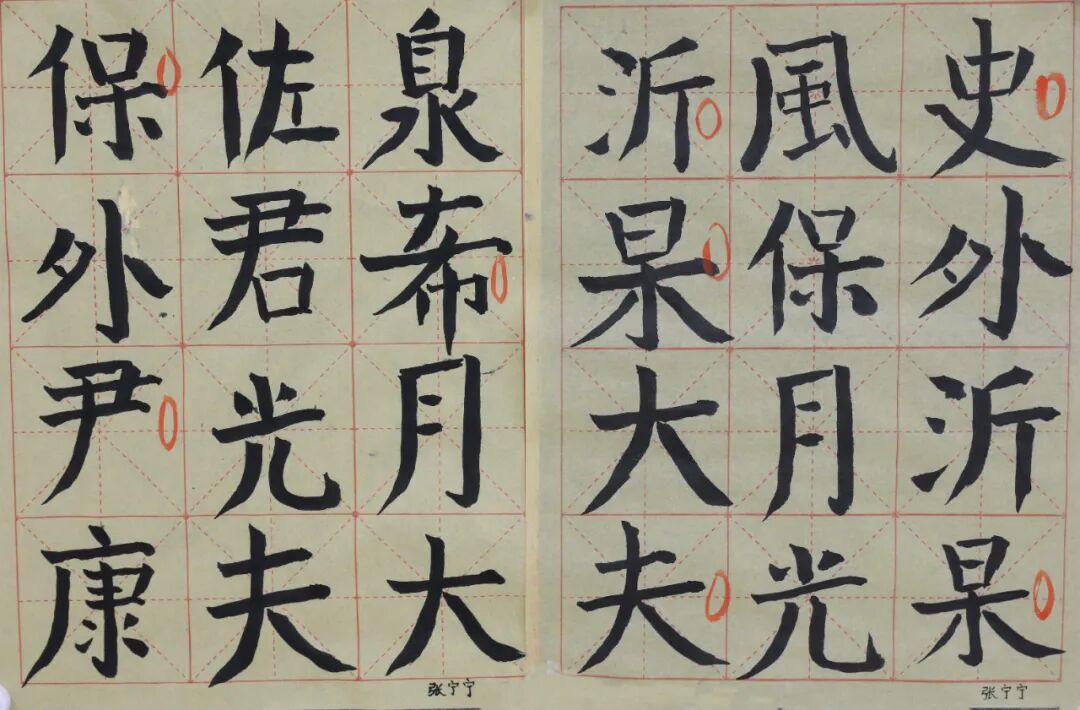 史外沂杲
風保月光
沂杲大夫
张宁宁
泉希月大
佐君光夫
保外尹康
张宁宁